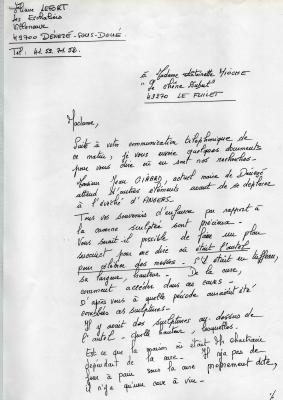 Liliane LEFORT
Les Ecotelières
Villeneuve
49700 DENEZÉ-SOUS-DOUÉ
Tél : 41.59.71.56.
à Madame Antoinette MIOCHE
"Le Chêne Rabat"
49270 LE FUILET
Madame,
Suite à votre communication téléphonique de
ce matin, je vous envoie quelques documents
pour vous dire où en sont nos recherches.
Monsieur Jean GIRARD, actuel maire de Denezé
attend d'autres éléments avant de se déplacer
à l'évêché d'ANGERS.
Tous vos souvenirs d'enfance par rapport à
la caverne sculptée sont précieux.
Vous serait-il possible de faire un plan
succinct pour me dire où était l'autel
pour célébrer des messes. S'il était en tuffeau,
sa largeur, hauteur. De la cave,
comment accéder dans ces caves.
D'après vous à quelle période auraient été
comblées ces sculptures.
Il y avait des sculptures au-dessus de
l'autel. Quelle hauteur, lesquelles.
Est ce que la maison où était Mr
dépendait de la cure. Il n'y a pas de
four à pain sous la cure proprement dite,
il n'y a qu'une cave à vin.